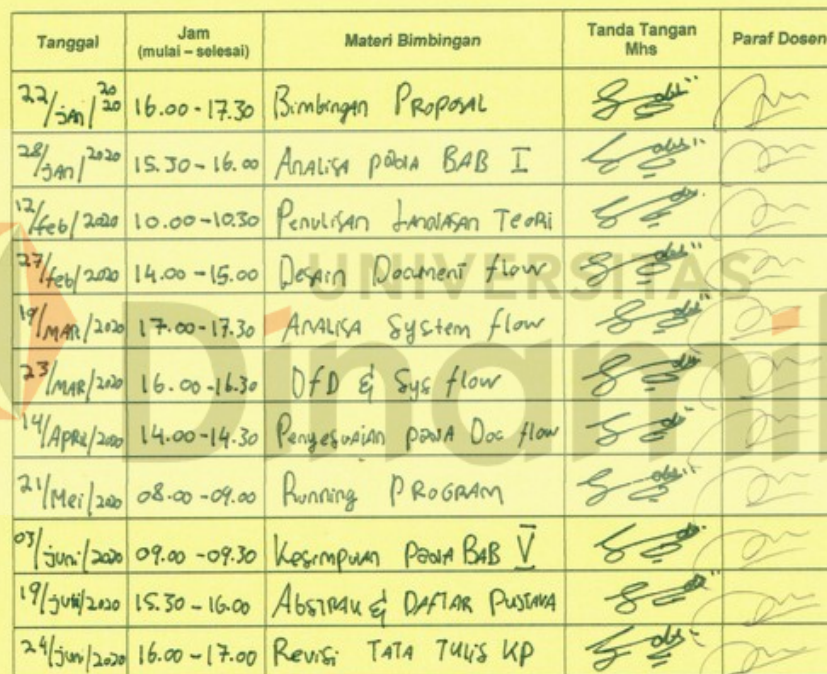 Tanggal Jam (mulai – selesai) Materi Bimbingan Tanda Tangan Mhs Paraf Dosen
22/jan/2020 16.00 - 17.30 Bimbingan PROPOSAL
28/jan/2020 15.30 - 16.00 ANALISA PADA BAB I
12/feb/2020 10.00 - 10.30 Penulisan LANDASAN TEORI
27/feb/2020 14.00 - 15.00 Desain Document flow
19/MAR/2020 17.00 - 17.30 ANALISA System flow
23/MAR/2020 16.00 - 16.30 DFD & Sys flow
14/April/2020 14.00 - 14.30 Penyesuaian PADA Doc flow
21/Mei/2020 08.00 - 09.00 Running PROGRAM
03/juni/2020 09.00 - 09.30 Kesimpulan PADA BAB V
19/juni/2020 15.30 - 16.00 ABSTRAK & DAFTAR PUSTAKA
24/juni/2020 16.00 - 17.00 Revisi TATA TULIS KP
UNIVERSITAS
Dinami